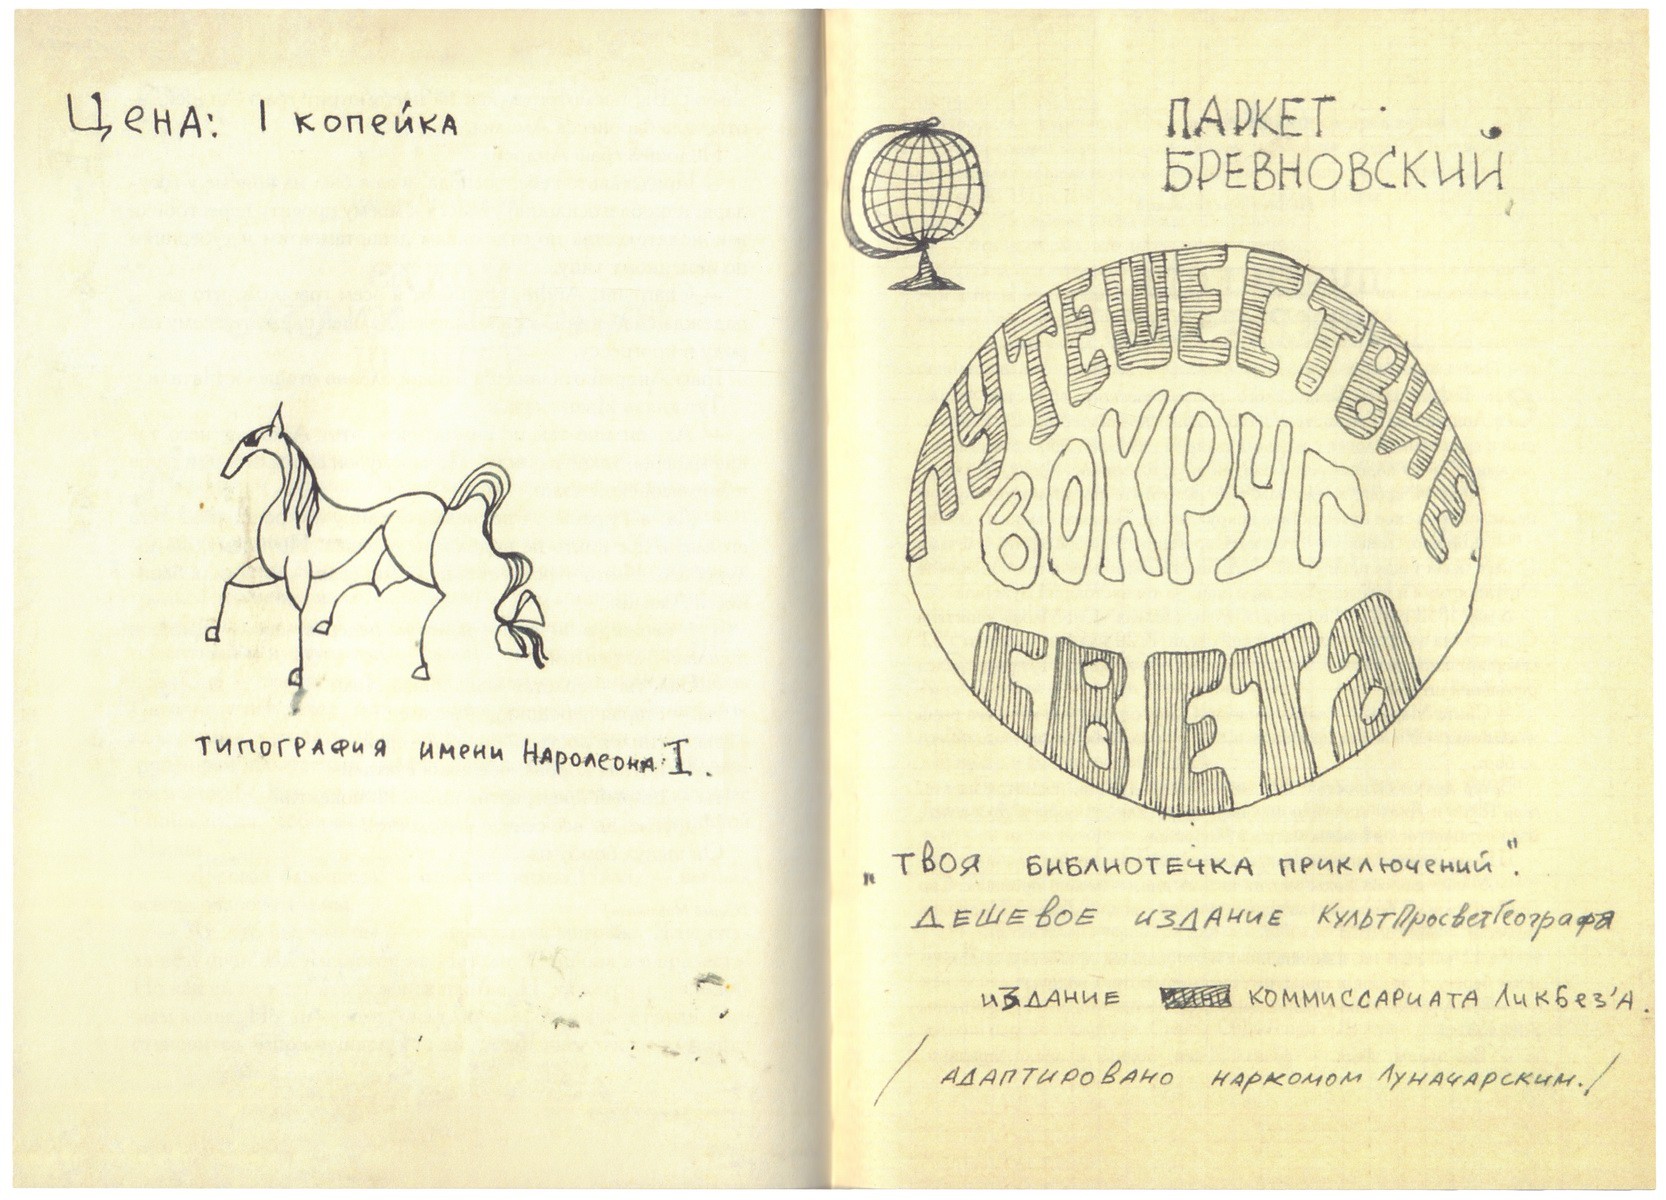 Цена: 1 копейка
типография имени Наролеона I.
ПАРКЕТ
БРЕВНОВСКИЙ
ПУТЕШЕСТВИЕ
ВОКРУГ
СВЕТА
„ТВОЯ БИБЛИОТЕЧКА ПРИКЛЮЧЕНИЙ".
ДЕШЕВОЕ ИЗДАНИЕ КультПросветГеографа
ИЗДАНИЕ КОММИССАРИАТА ЛикБез'А.
/АДАПТИРОВАНО НАРКОМОМ ЛУНАЧАРСКИМ./